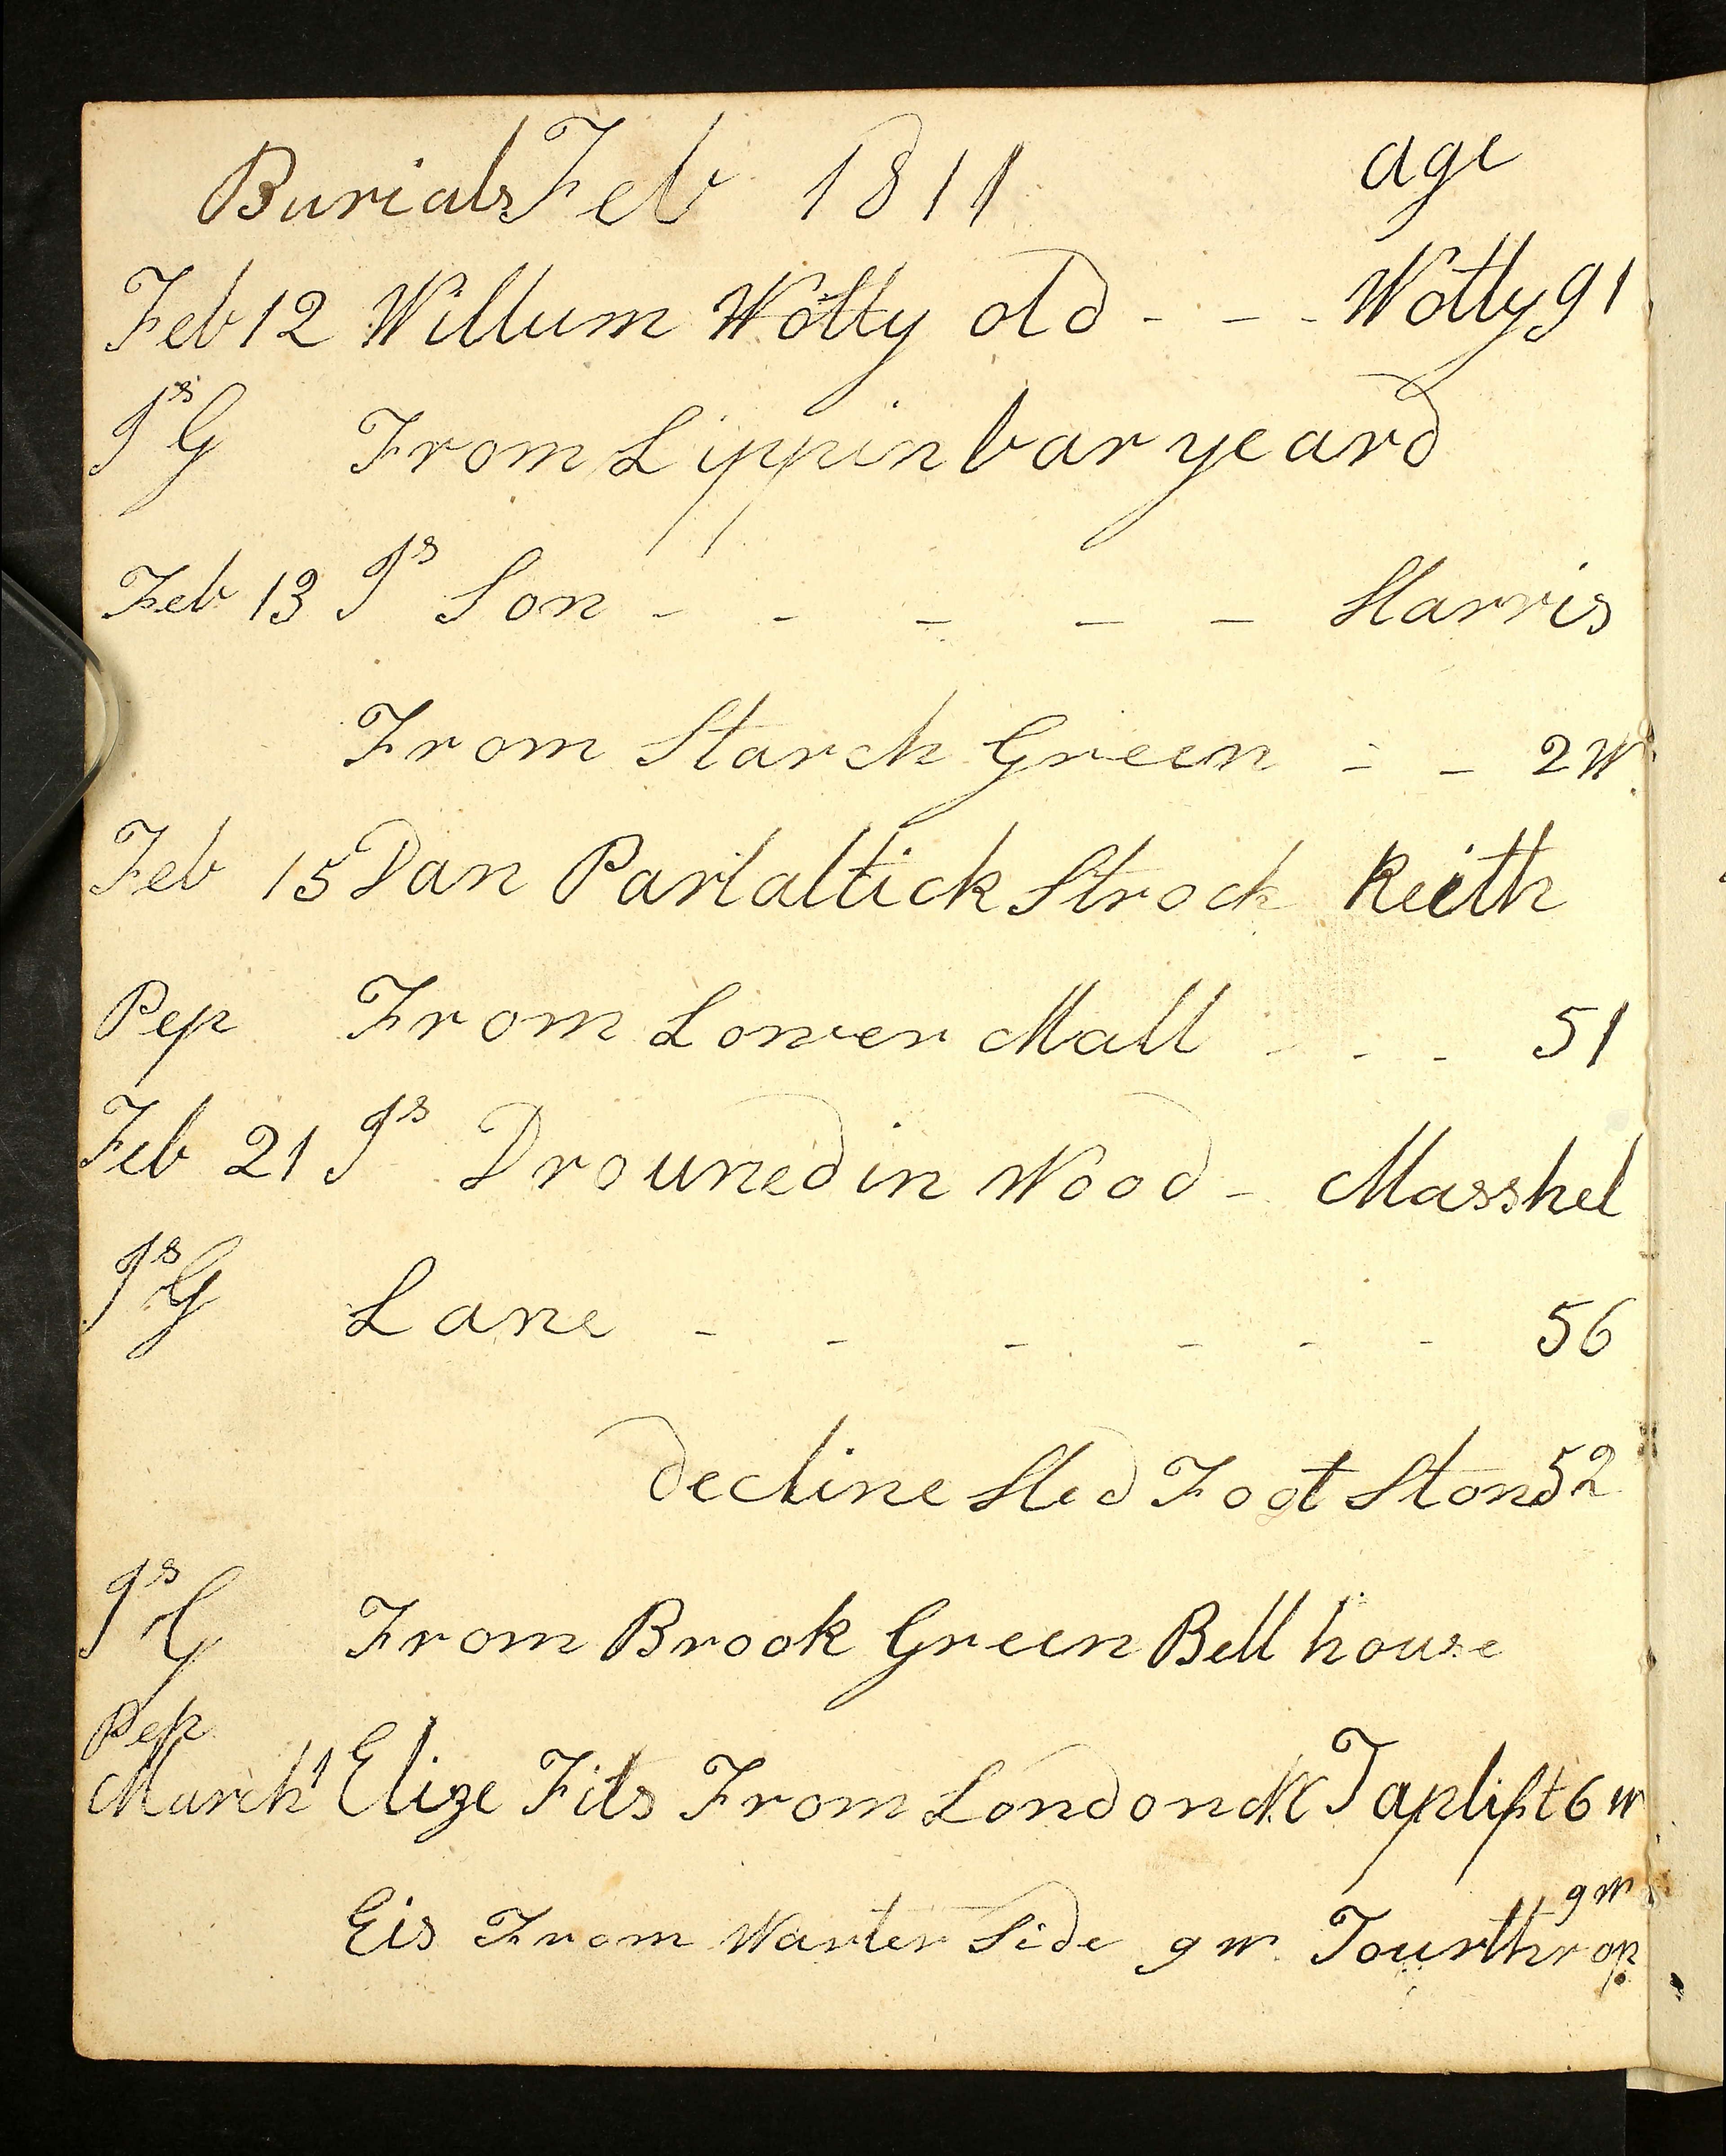 Burials Feb 1811 age
Feb 12 Willum Wotty old - - - Wotty 91
Js G From Lippin bar yeard
Feb 13 Js Son - - - - - Harris
From Starch Green - - 2 W
Feb 15 Dan Partaltick Strock Reith
Pep From Lower Mall - - - 51
Feb 21 Js Drouned in Wood - Masshel
Js G Lane - - - - - - 56
decline Hed Foot Ston 52
Js G From Brook Green Bell house
Pep
March 1 Elize Fits From London Taplift 6 w
9 w
Eis From Warter Side 9 w. Tourthrop